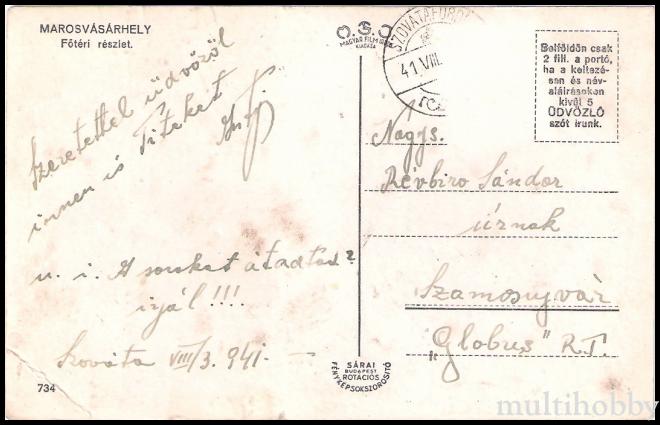 MAROSVÁSÁRHELY
Főtéri részlet.
Szeretettel üdvözöl
innen is Titeket
u. i. A sorokat átadtad?
irjál!!!
Szováta VIII/3. 941.
734
MAGYAR FILM IRODA
KIADÁSA
SZOVÁTAFÜRDŐ
41.VIII.
SÁRAI
BUDAPEST
ROTÁCIÓS
FÉNYKÉPSOKSZOROSITÓ
Belföldön csak
2 fill. a portó,
ha a keltezé-
sen és név-
aláirásokon
kivül 5
ÜDVÖZLŐ
szót irunk.
Nagys.
Révbiro Sándor
úrnak
Szamosujvár
„Globus" R.T.
multihobby